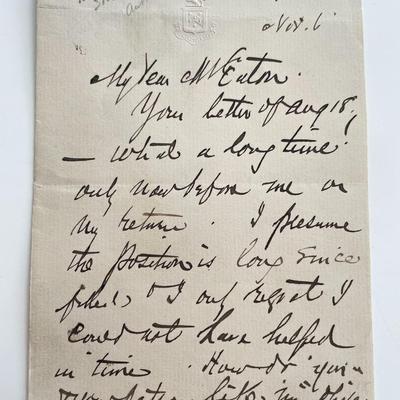 Nov. 6
My Dear Mr Eaton.
Your letter of Aug 18,
— what a long time!
only now before me on
my return. I presume
the position is long since
filled & I only regret I
could not have helped
in time. How do you